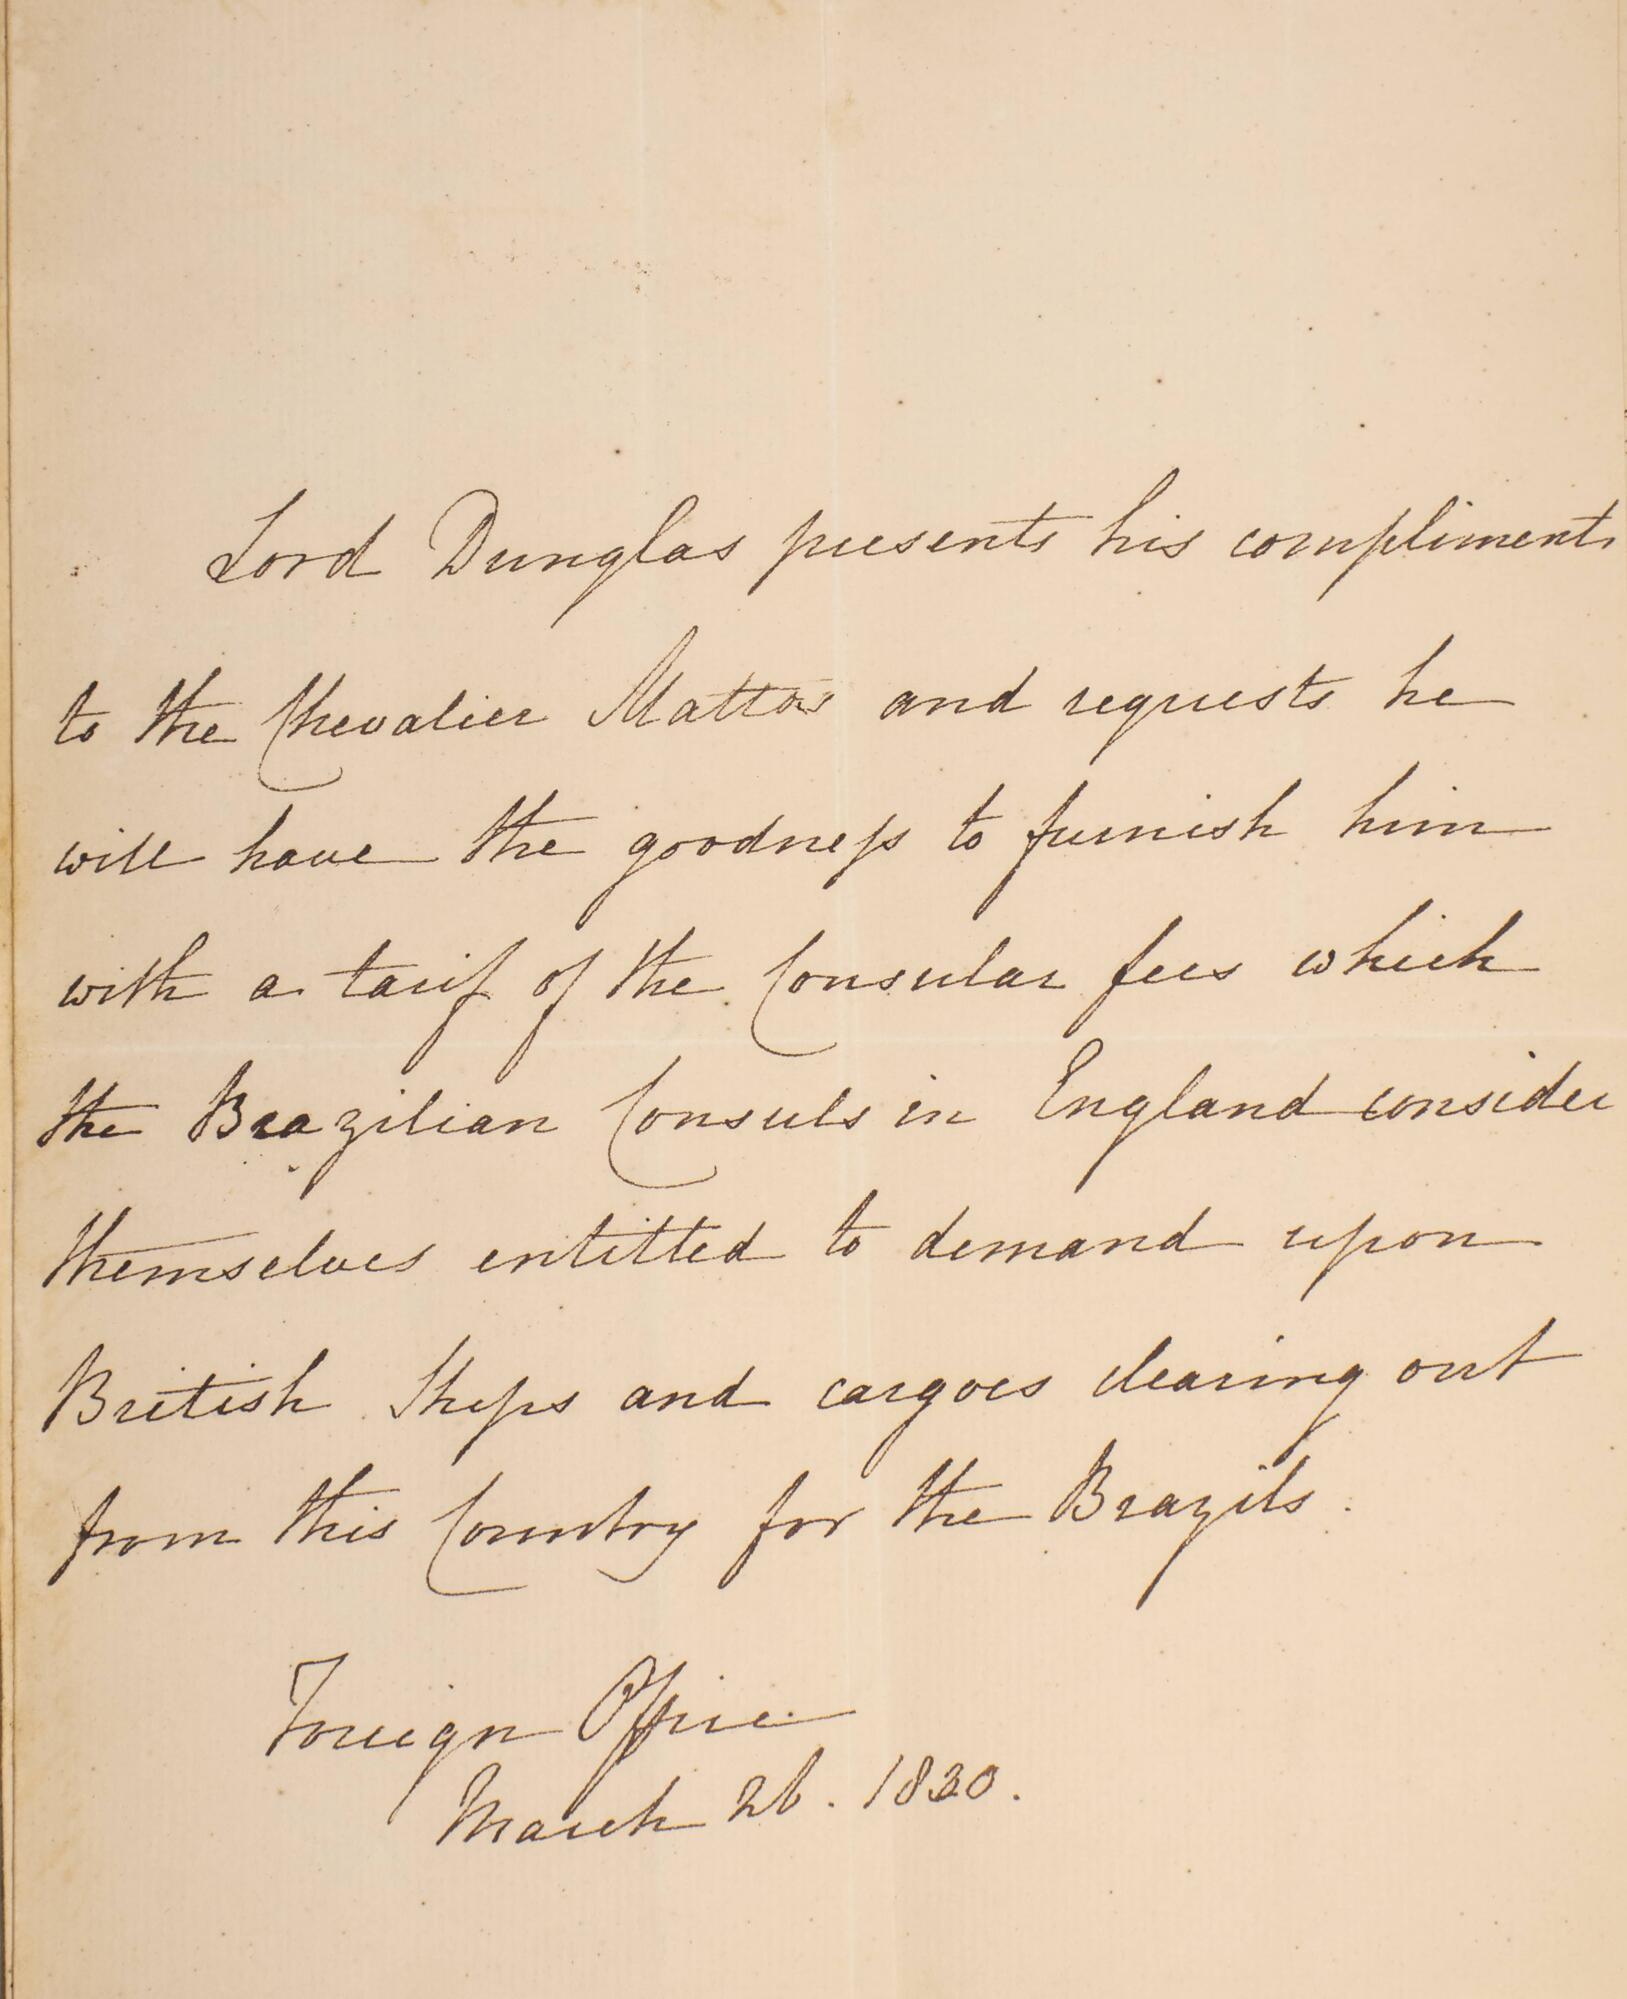 Lord Dunglas presents his compliments
to the Chevalier Mattos and requests he
will have the goodness to furnish him
with a tarif of the Consular fees which
the Brazilian Consuls in England consider
themselves entitled to demand upon
British Ships and cargoes clearing out
from this Country for the Brazils.
Foreign Office
March 26. 1830.